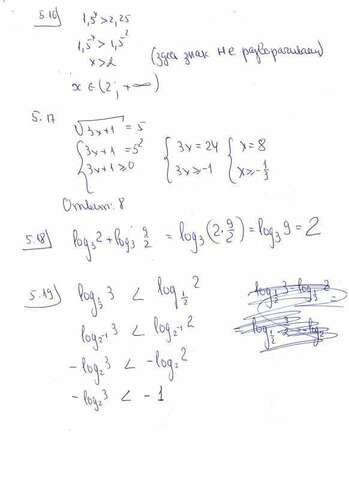 5.16)
1,5ˣ > 2,25
1,5ˣ > 1,5²
x > 2 (здесь знак не разворачиваем)
x ∈ (2; +∞)
5.17
√(3x+1) = 5
{3x+1 = 5² {3x = 24 {x = 8
{3x+1 ≥ 0 {3x ≥ -1 {x ≥ -1/3
Ответ: 8
5.18) log₃2 + log₃ 9/2 = log₃(2·9/2) = log₃9 = 2
5.19) log_{1/2} 3 < log_{1/2} 2
log_{2⁻¹} 3 < log_{2⁻¹} 2
-log₂3 < -log₂2
-log₂3 < -1